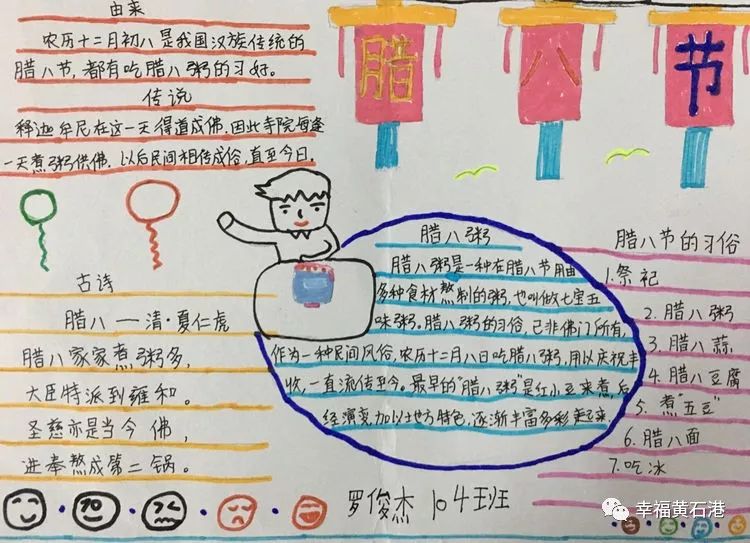 腊八节
由来
农历十二月初八是我国汉族传统的
腊八节,都有吃腊八粥的习好。
传说
释迦牟尼在这一天得道成佛,因此寺院每逢
一天煮粥供佛,以后民间相传成俗,直至今日.
古诗
腊八——清·夏仁虎
腊八家家煮粥多,
大臣特派到雍和。
圣慈亦是当今佛,
进奉熬成第二锅。
腊八粥
腊八粥是一种在腊八节用由
多种食材熬制的粥,也叫做七宝五
味粥。腊八粥的习俗,已非佛门所有,
作为一种民间风俗,农历十二月八日吃腊八粥,用以庆祝丰
收,一直流传至今。最早的"腊八粥"是红小豆来煮,后
经演变,加以地方特色,逐渐丰富多彩起来.
腊八节的习俗
1.祭祀
2.腊八粥
3.腊八蒜
4.腊八豆腐
5.煮"五豆"
6.腊八面
7.吃冰
罗俊杰 104班
幸福黄石港